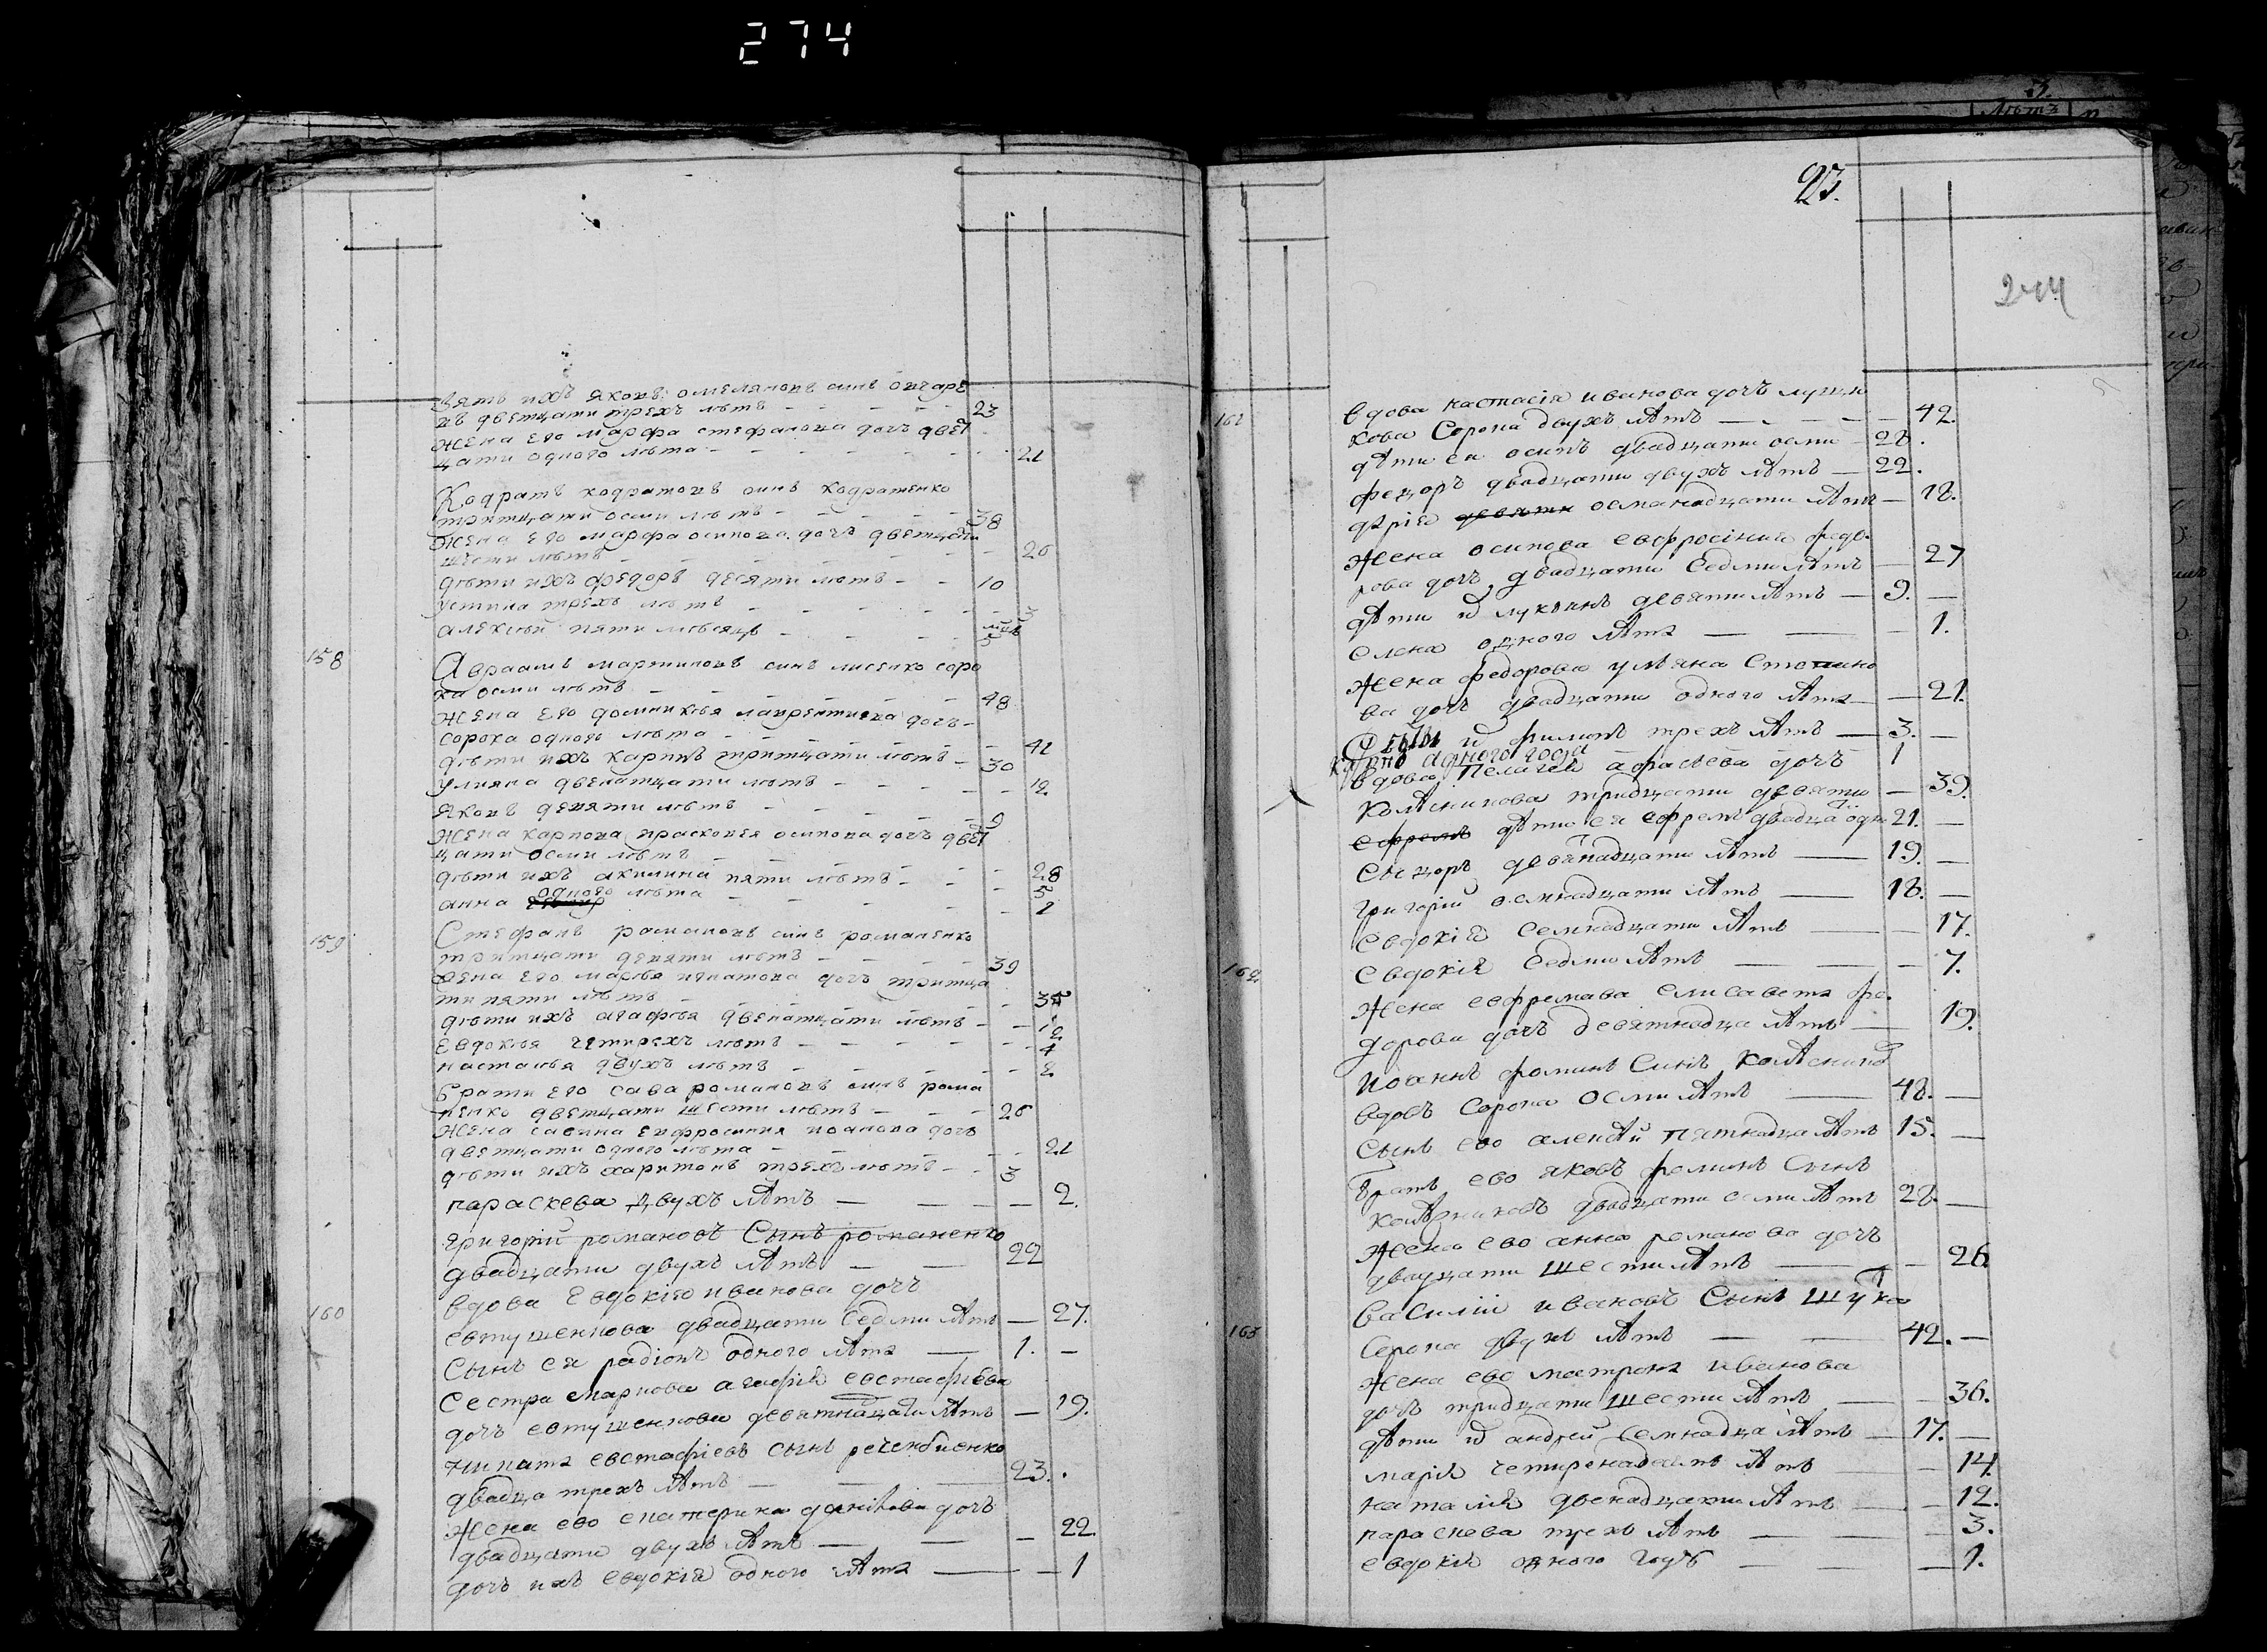 274
зять ихъ яковъ омеляновъ синъ овчаре
въ дветцати трехъ лѣтъ - - - - - 23
жена его марфа стефанова дочъ двет
цати одного лѣта - - - - - - 21
Кодратъ кодратовъ синъ кодратенко
тритцати осми лѣтъ - - - - - 38
жена его марфа осипова дочъ дветцати
шести лѣтъ - - - - - - 26
дѣти ихъ федоръ десяти лѣтъ - - 10
устина трехъ лѣтъ - - - - - 3
алексѣй пяти мѣсяцъ - - - - 5
158
Авраамъ мартиновъ синъ лисенко соро
ка осми лѣтъ - - - - - 48
жена его домникія лаврентиева дочъ -
сорока одного лѣта - - - - - 41
дѣти ихъ карпъ тритцати лѣтъ - 30
улияна двенатцати лѣтъ - - - - - 12
яковъ девяти лѣтъ - - - - 9
жена карпова прасковея осипова дочъ двет
цати осми лѣтъ - - - - - 28
дѣти ихъ акилина пяти лѣтъ - - - 5
анна одного лѣта - - - - - 1
159
Стефанъ романовъ синъ романенко
тритцати девяти лѣтъ - - - - 39
жена его марья игнатова дочъ тритца
ти пяти лѣтъ - - - - - 35
дѣти ихъ агафья двенатцати лѣтъ - - 12
евдокѣя четирехъ лѣтъ - - - - - 4
настасѣя двухъ лѣтъ - - - - - 2
Брати его сава романовъ синъ рома
ненко дветцати шести лѣтъ - - - 26
жена савина ефросиния иванова дочъ
дветцати одного лѣта - - - - 21
дѣти ихъ харитонъ трехъ лѣтъ - - 3
параскева двухъ лѣтъ — — — 2.
григорій романовъ Сынъ романенко
двадцати двухъ лѣтъ — — 22
160
вдова Евдокія иванова дочъ
евтушенкова двадцати Седми лѣтъ — 27.
Сынъ ея радіонъ одного лѣта — 1. —
Сестра маркова агафія евстафіева
дочъ евтушенкова девятнадцати лѣтъ — 19.
игнатъ евстафіевъ сынъ
двадца трехъ лѣтъ — — 23.
жена ево екатерина данілова дочъ
двадцати двухъ лѣтъ — — — 22.
дочъ ихъ евдокія одного лѣта — — 1
23.
244
161
вдова настасія иванова дочъ
кова Сорока двухъ лѣтъ — — — — 42.
дѣти ея осипъ двадцати осми — 28.
федоръ двадцати двухъ лѣтъ — 22.
дарія девяти османадцати лѣтъ — 18.
жена осипова евфросінія федо
рова дочъ двадцати Седми лѣтъ — 27
дѣти и лукянъ девяти лѣтъ — 9. —
елена одного лѣта — — — 1.
жена федорова улѣяна
ва дочъ двадцати одного лѣта — — 21.
Сынъ и филипъ трехъ лѣтъ — 3. —
карпо адного года 1
вдова Пелагея афанасьева дочъ
Колѣсникова тридцати девяти — 39.
ефремъ дѣти ея ефремъ двадца одн 21. —
Сыдоръ девятнадцати лѣтъ — 19. —
григорій осмнадцати лѣтъ — 18. —
Евдокія Семнадцати лѣтъ — — 17.
162
Евдокія Седми лѣтъ — — — 7.
жена ефремава елисавета фео
дорова дочъ девятнадца лѣтъ — 19.
иоаннъ фоминъ Синъ Колѣснико
вдовъ Сорока Осми лѣтъ — 48. —
Сынъ ево алексѣй пятнадца лѣтъ 15. —
братъ ево яковъ фоминъ Сынъ
колѣсниковъ двадцати осми лѣтъ 28. —
жена ево анна романова дочъ
двадцати шести лѣтъ — — 26
163
Василій ивановъ Сынъ Шутка
Сорока двухъ лѣтъ — — 42. —
жена ево матрона иванова
дочъ тридцати шести лѣтъ — — 36.
дѣти и андрей Семнадца лѣтъ — 17. —
марія четиренадцать лѣтъ — 14.
наталія двенадцати лѣтъ — — 12.
параскева трехъ лѣтъ — — — 3.
евдокія одного году — — — 1.